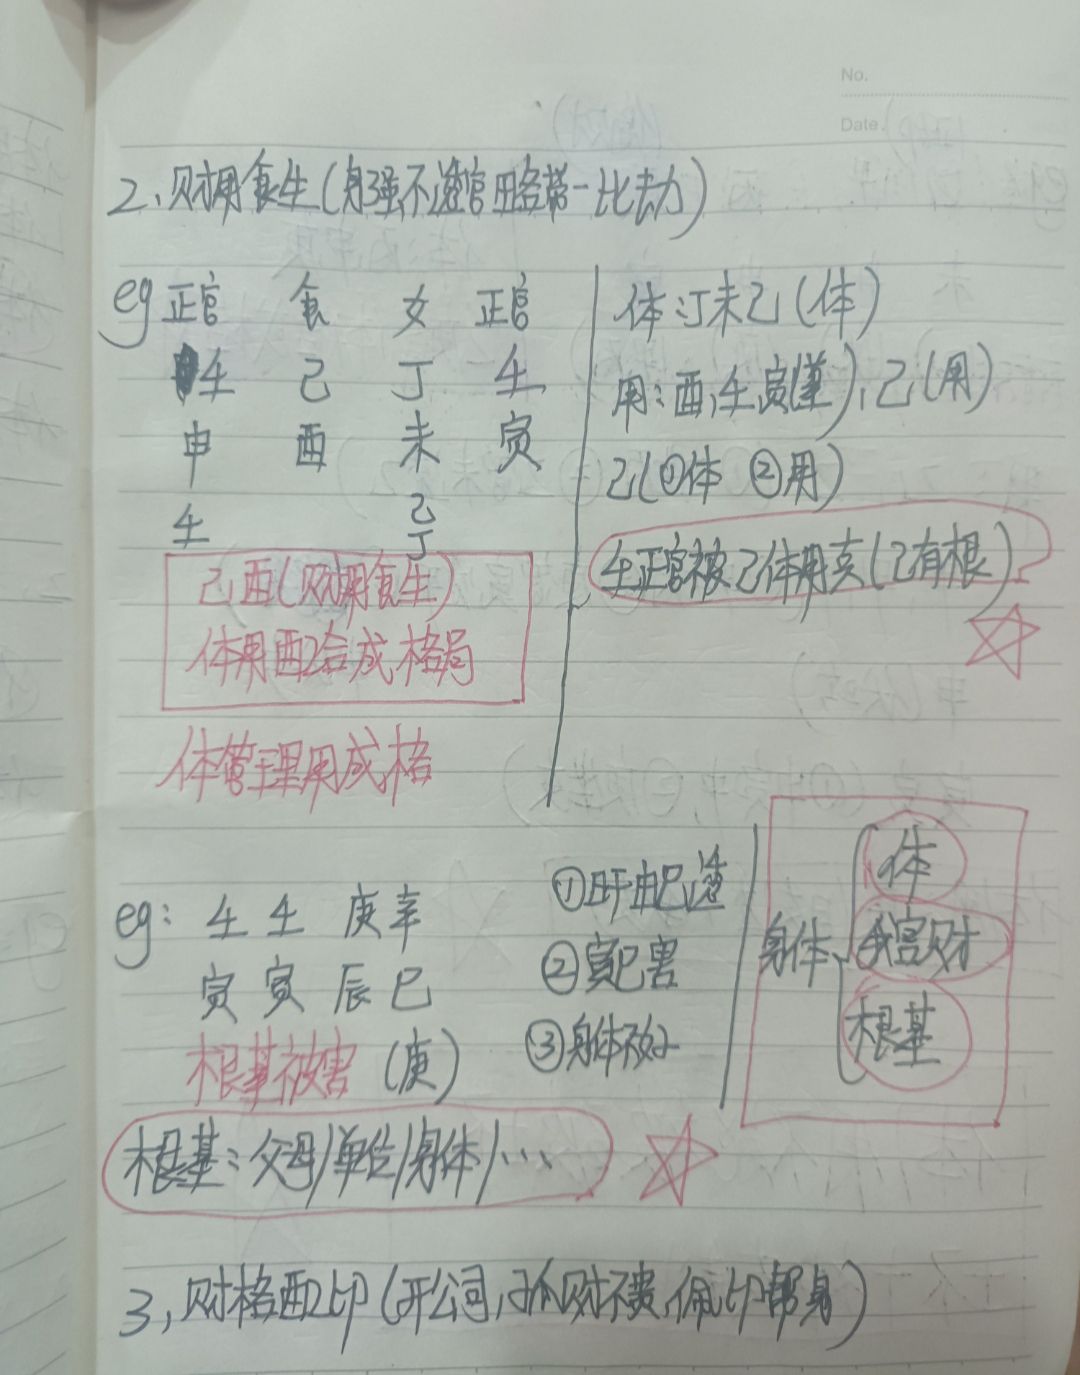 No.
Date.
2、财用食生(身强不透官略带一比劫)
eg 正官 食 女 正官
壬 己 丁 壬
申 酉 未 寅
壬 乙
丁
己酉(财用食生)
体用配合成格局
体管理用成格
体:丁未己(体)
用:酉,壬,寅(墓)、己(用)
己(①体 ②用)
壬正官被己体用克(己有根)
eg: 壬 壬 庚 辛
寅 寅 辰 巳
根基被害 (庚)
①旺于由巳透
②寅巳害
③身体不好
身体
体
我害财
根基
根基:父母/单位/身体/…
3,财格配印(开公司,孤财不贵,佩印帮身)